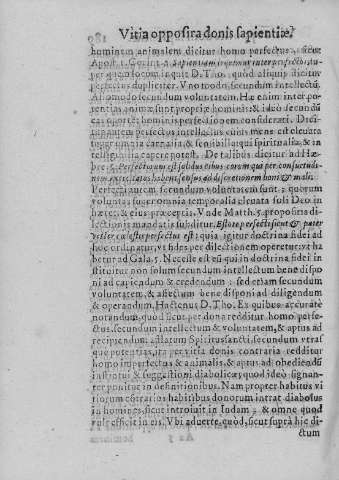 Vitia opposita donis sapientiæ,
hominem animalem dicitur homo perfectus,
Apost. 1. Corint. 2. Sapientiam loquimur inter perfectos,
per quem locum inquit D. Tho. quod aliquis dicitur
perfectus dupliciter. Vno modo secundum intellectũ,
Alio modo secundum voluntatem. Hæc enim inter
potentias animæ sunt propriæ hominis: & ideo secundũ
eas oportet hominis perfectionem considerari. Dici
autem perfectus intellectus cuius mens est eleuata
supra omnia carnalia & sensibilia: qui spiritualia & in
telligibilia capere potest. De talibus dicitur ad Hæ
bre. 5. Perfectorum est solidus cibus, eorum qui per consuetudi
nem exercitatos habent sensus ad discretionem boni & mali.
Perfecti autem secundum voluntatem sunt: quorum
voluntas super omnia temporalia eleuata soli Deo in
hæret, & eius præceptis. Vnde Matth. 5. proposita di
lectionis mandatis subditur. Estote perfecti sicut & pater
vester cælestis perfectus est: quia igitur doctrina fidei ad
hoc ordinatur, vt fides per dilectionem operetur: vt ha
betur ad Gala. 5. Necesse est eũ qui in doctrina fidei in
stituitur non solum secundum intellectum bene dispo
ni ad capiendum & credendum: sed etiam secundum
voluntatem, & affectum bene disponi ad diligendum
& operandum. Hactenus D. Tho. Ex quibus accurate
notandum, quod sicut per dona redditur homo perfe-
ctus, secundum intellectum & voluntatem, & aptus ad
recipiendum afflatum Spiritus sancti, secundum vtras
que potentias, ita per vitia donis contraria redditur
homo imperfectus & animalis, & aptus ad obediendũ
instinctui & suggestioni diabolicæ, quod ideò signan-
ter ponitur in definitionibus. Nam propter habitus vi
tiorum cõtrarios habitibus donorum intrat diabolus
in homines, sicut introiuit in Iudam: & omne quod
vult efficit in eis. Vbi aduerte, quod, sicut suprà hic di-
ctum